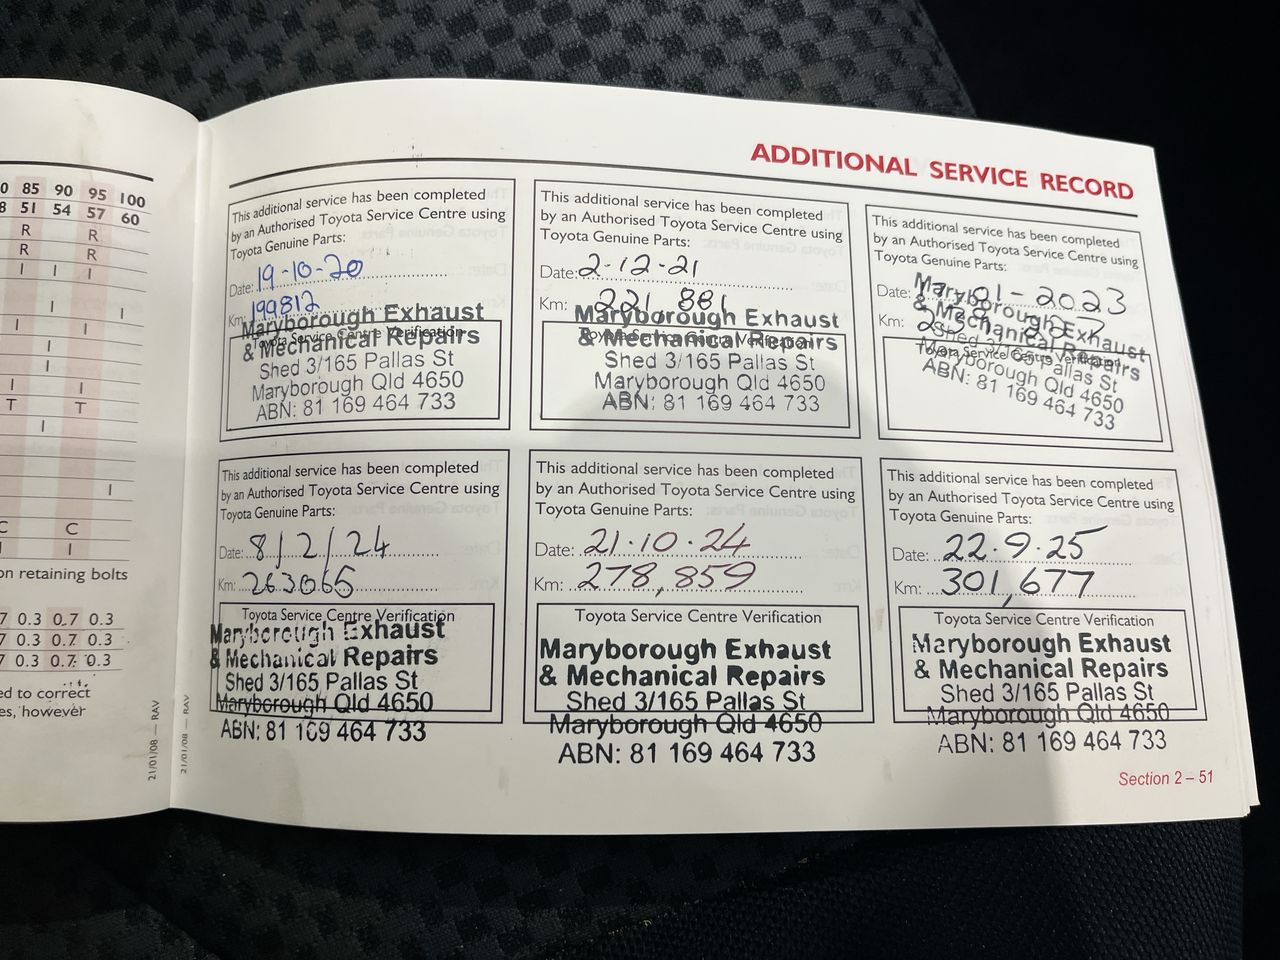 0 85 90 95 100
8 51 54 57 60
R R
R R
I I I
I I
I I
I
I
I I
T T
I
I
C C
I I
on retaining bolts
7 0.3 0.7 0.3
7 0.3 0.7 0.3
7 0.3 0.7 0.3
ed to correct
es, however
21/01/08 — RAV
21/01/08 — RAV
ADDITIONAL SERVICE RECORD
This additional service has been completed
by an Authorised Toyota Service Centre using
Toyota Genuine Parts:
Date: 19-10-20
Km: 199812
Toyota Service Centre Verification
Maryborough Exhaust
& Mechanical Repairs
Shed 3/165 Pallas St
Maryborough Qld 4650
ABN: 81 169 464 733
This additional service has been completed
by an Authorised Toyota Service Centre using
Toyota Genuine Parts:
Date: 2-12-21
Km: 221,881
Toyota Service Centre Verification
Maryborough Exhaust
& Mechanical Repairs
Shed 3/165 Pallas St
Maryborough Qld 4650
ABN: 81 169 464 733
This additional service has been completed
by an Authorised Toyota Service Centre using
Toyota Genuine Parts:
Date: 01-2023
Km:
Toyota Service Centre Verification
Maryborough Exhaust
& Mechanical Repairs
Shed 3/165 Pallas St
Maryborough Qld 4650
ABN: 81 169 464 733
This additional service has been completed
by an Authorised Toyota Service Centre using
Toyota Genuine Parts:
Date: 8/2/24
Km: 263065
Toyota Service Centre Verification
Maryborough Exhaust
& Mechanical Repairs
Shed 3/165 Pallas St
Maryborough Qld 4650
ABN: 81 169 464 733
This additional service has been completed
by an Authorised Toyota Service Centre using
Toyota Genuine Parts:
Date: 21.10.24
Km: 278,859
Toyota Service Centre Verification
Maryborough Exhaust
& Mechanical Repairs
Shed 3/165 Pallas St
Maryborough Qld 4650
ABN: 81 169 464 733
This additional service has been completed
by an Authorised Toyota Service Centre using
Toyota Genuine Parts:
Date: 22.9.25
Km: 301,677
Toyota Service Centre Verification
Maryborough Exhaust
& Mechanical Repairs
Shed 3/165 Pallas St
Maryborough Qld 4650
ABN: 81 169 464 733
Section 2 – 51